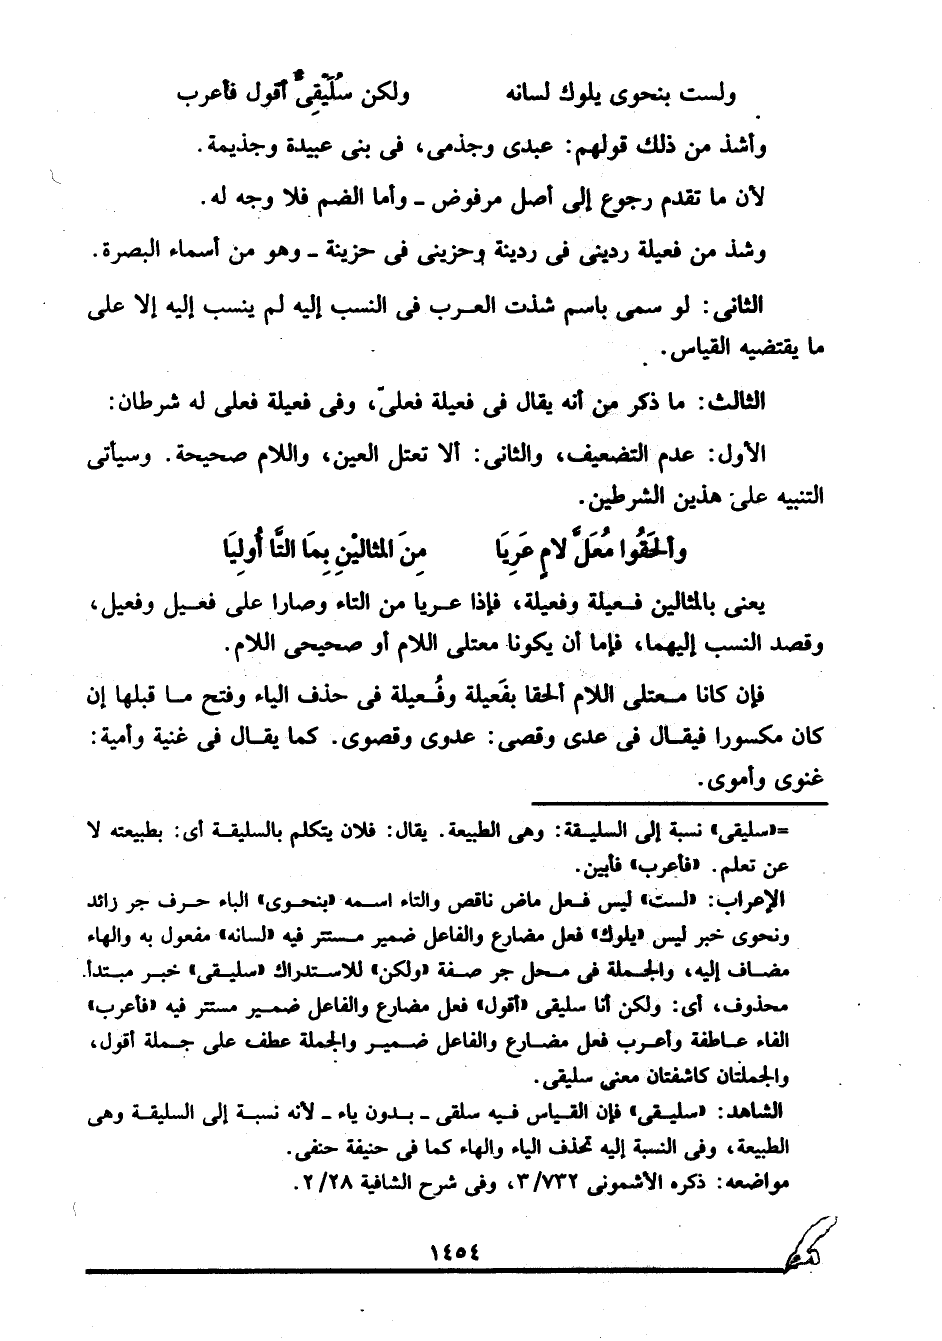 ولست بنحوى يلوك لسانه ولكن سُلَيقِى* أقول فأعرب
وأشذ من ذلك قولهم: عبدى وجذمى، فى بنى عبيدة وجذيمة.
لأن ما تقدم رجوع إلى أصل مرفوض ـ وأما الضم فلا وجه له.
وشذ من فعيلة ردينى فى ردينة وحزينى فى حزينة ـ وهو من أسماء البصرة.
الثانى: لو سمى باسم شذت العرب فى النسب إليه لم ينسب إليه إلا على
ما يقتضيه القياس.
الثالث: ما ذكر من أنه يقال فى فعيلة فعلىّ، وفى فعيلة فعلى له شرطان:
الأول: عدم التضعيف، والثانى: ألا تعتل العين، واللام صحيحة. وسيأتى
التنبيه على هذين الشرطين.
وأَلحَقُوا مُعَلَّ لامٍ عَرِيَا مِنَ المثالَيْنِ بِمَا التَّا أُولِيَا
يعنى بالمثالين فعيلة وفعيلة، فإذا عريا من التاء وصارا على فعيل وفعيل،
وقصد النسب إليهما، فإما أن يكونا معتلى اللام أو صحيحى اللام.
فإن كانا معتلى اللام ألحقا بفَعيلة وفُعيلة فى حذف الياء وفتح ما قبلها إن
كان مكسورا فيقال فى عدى وقصى: عدوى وقصوى. كما يقال فى غنية وأمية:
غنوى وأموى.
=«سليقى» نسبة إلى السليقة: وهى الطبيعة. يقال: فلان يتكلم بالسليقة أى: بطبيعته لا
عن تعلم. «فأعرب» فأبين.
الإعراب: «لست» ليس فعل ماض ناقص والتاء اسمه «بنحوى» الباء حرف جر زائد
ونحوى خبر ليس «يلوك» فعل مضارع والفاعل ضمير مستتر فيه «لسانه» مفعول به والهاء
مضاف إليه، والجملة فى محل جر صفة «ولكن» للاستدراك «سليقى» خبر مبتدأ.
محذوف، أى: ولكن أنا سليقى «أقول» فعل مضارع والفاعل ضمير مستتر فيه «فأعرب»
الفاء عاطفة وأعرب فعل مضارع والفاعل ضمير والجملة عطف على جملة أقول،
والجملتان كاشفتان معنى سليقى.
الشاهد: «سليقى» فإن القياس فيه سلقى ـ بدون ياء ـ لأنه نسبة إلى السليقة وهى
الطبيعة، وفى النسبة إليه تحذف الياء والهاء كما فى حنيفة حنفى.
مواضعه: ذكره الأشمونى ٣/٧٣٢، وفى شرح الشافية ٢/٢٨.
١٤٥٤